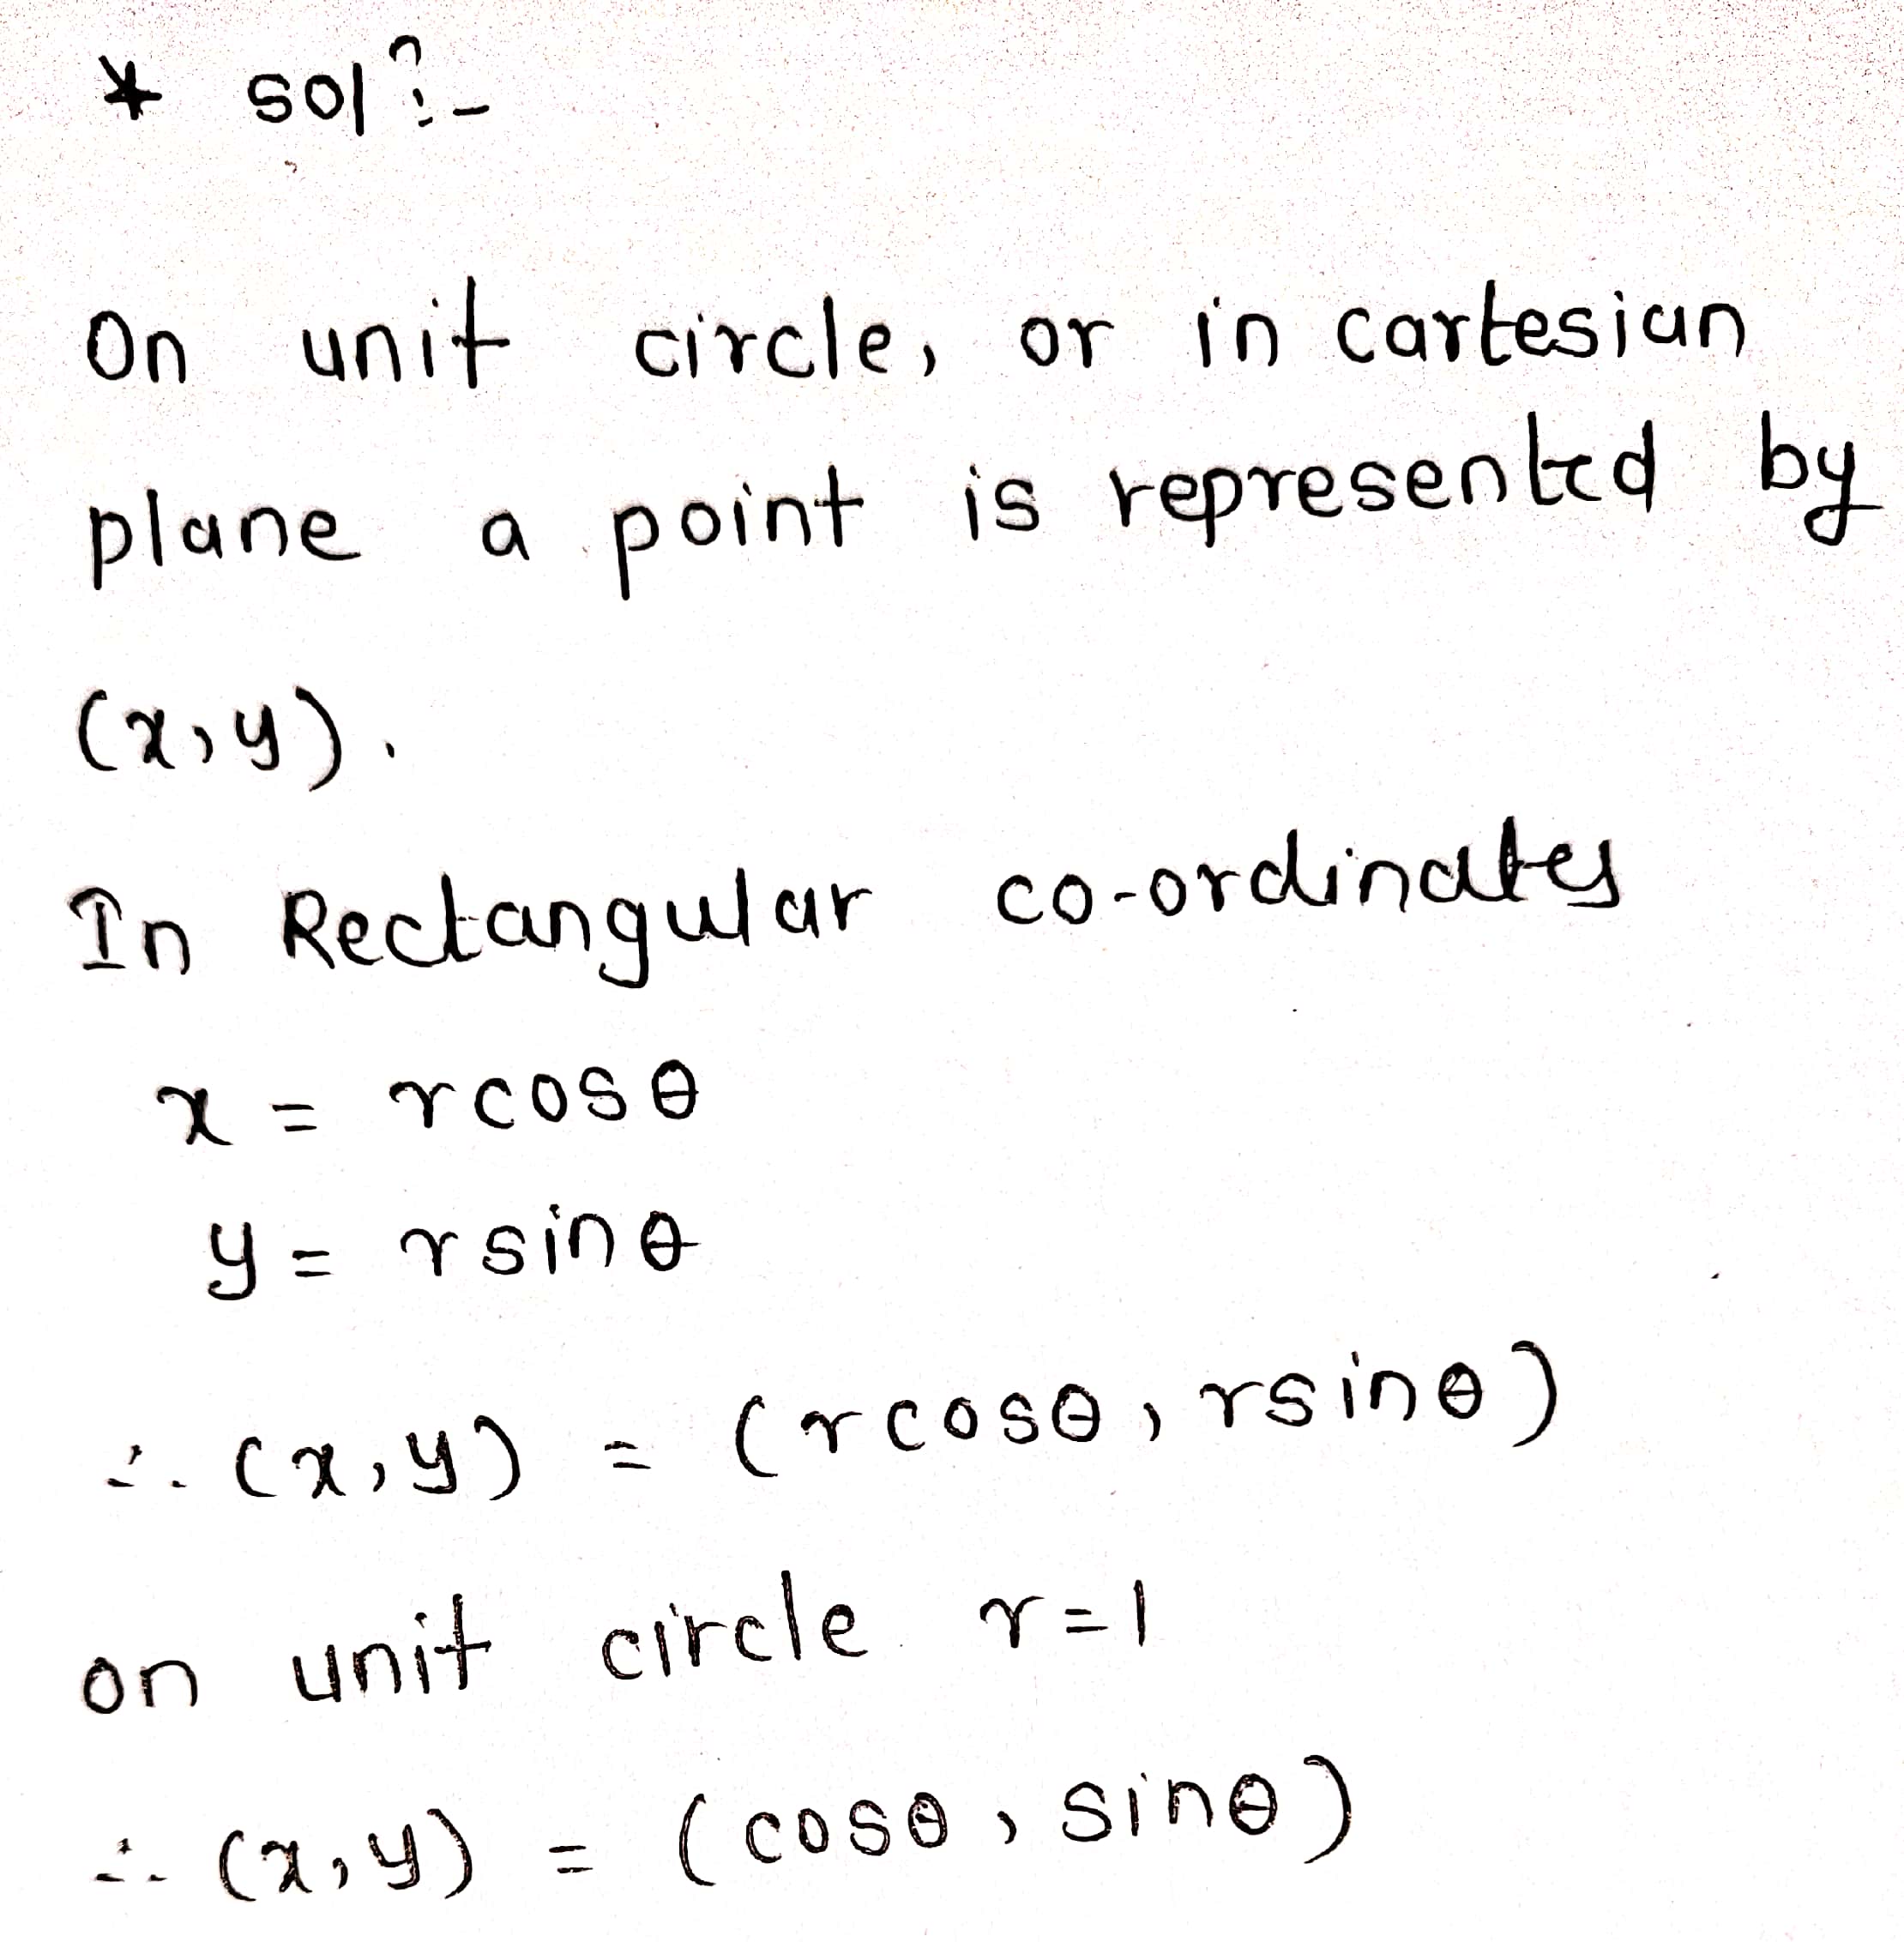 * solⁿ:-
On unit circle, or in cartesian
plane a point is represented by
(x,y).
In Rectangular co-ordinates
x = rcosθ
y = rsinθ
∴ (x,y) = (rcosθ, rsinθ)
on unit circle r=1
∴ (x,y) = (cosθ, sinθ)